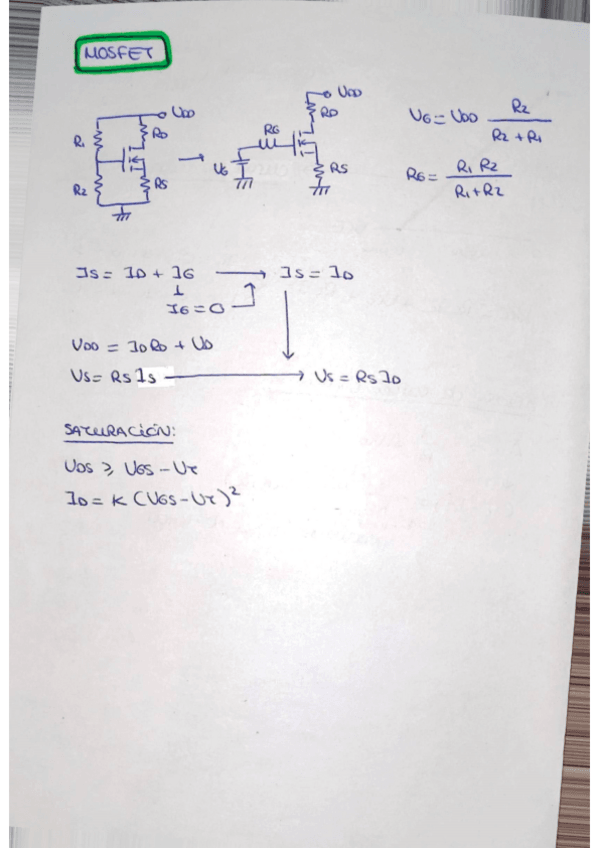 MOSFET
R1 RD VDD
R2 RS
VG RG RD VDD
RS
VG = VDD R2 / R2 + R1
RG = R1 R2 / R1 + R2
IS = ID + IG → IS = ID
IG = 0
VDD = ID RD + VD
VS = RS IS → VS = RS ID
SATURACIÓN:
VDS ⩾ VGS - VT
ID = K (VGS - VT)²